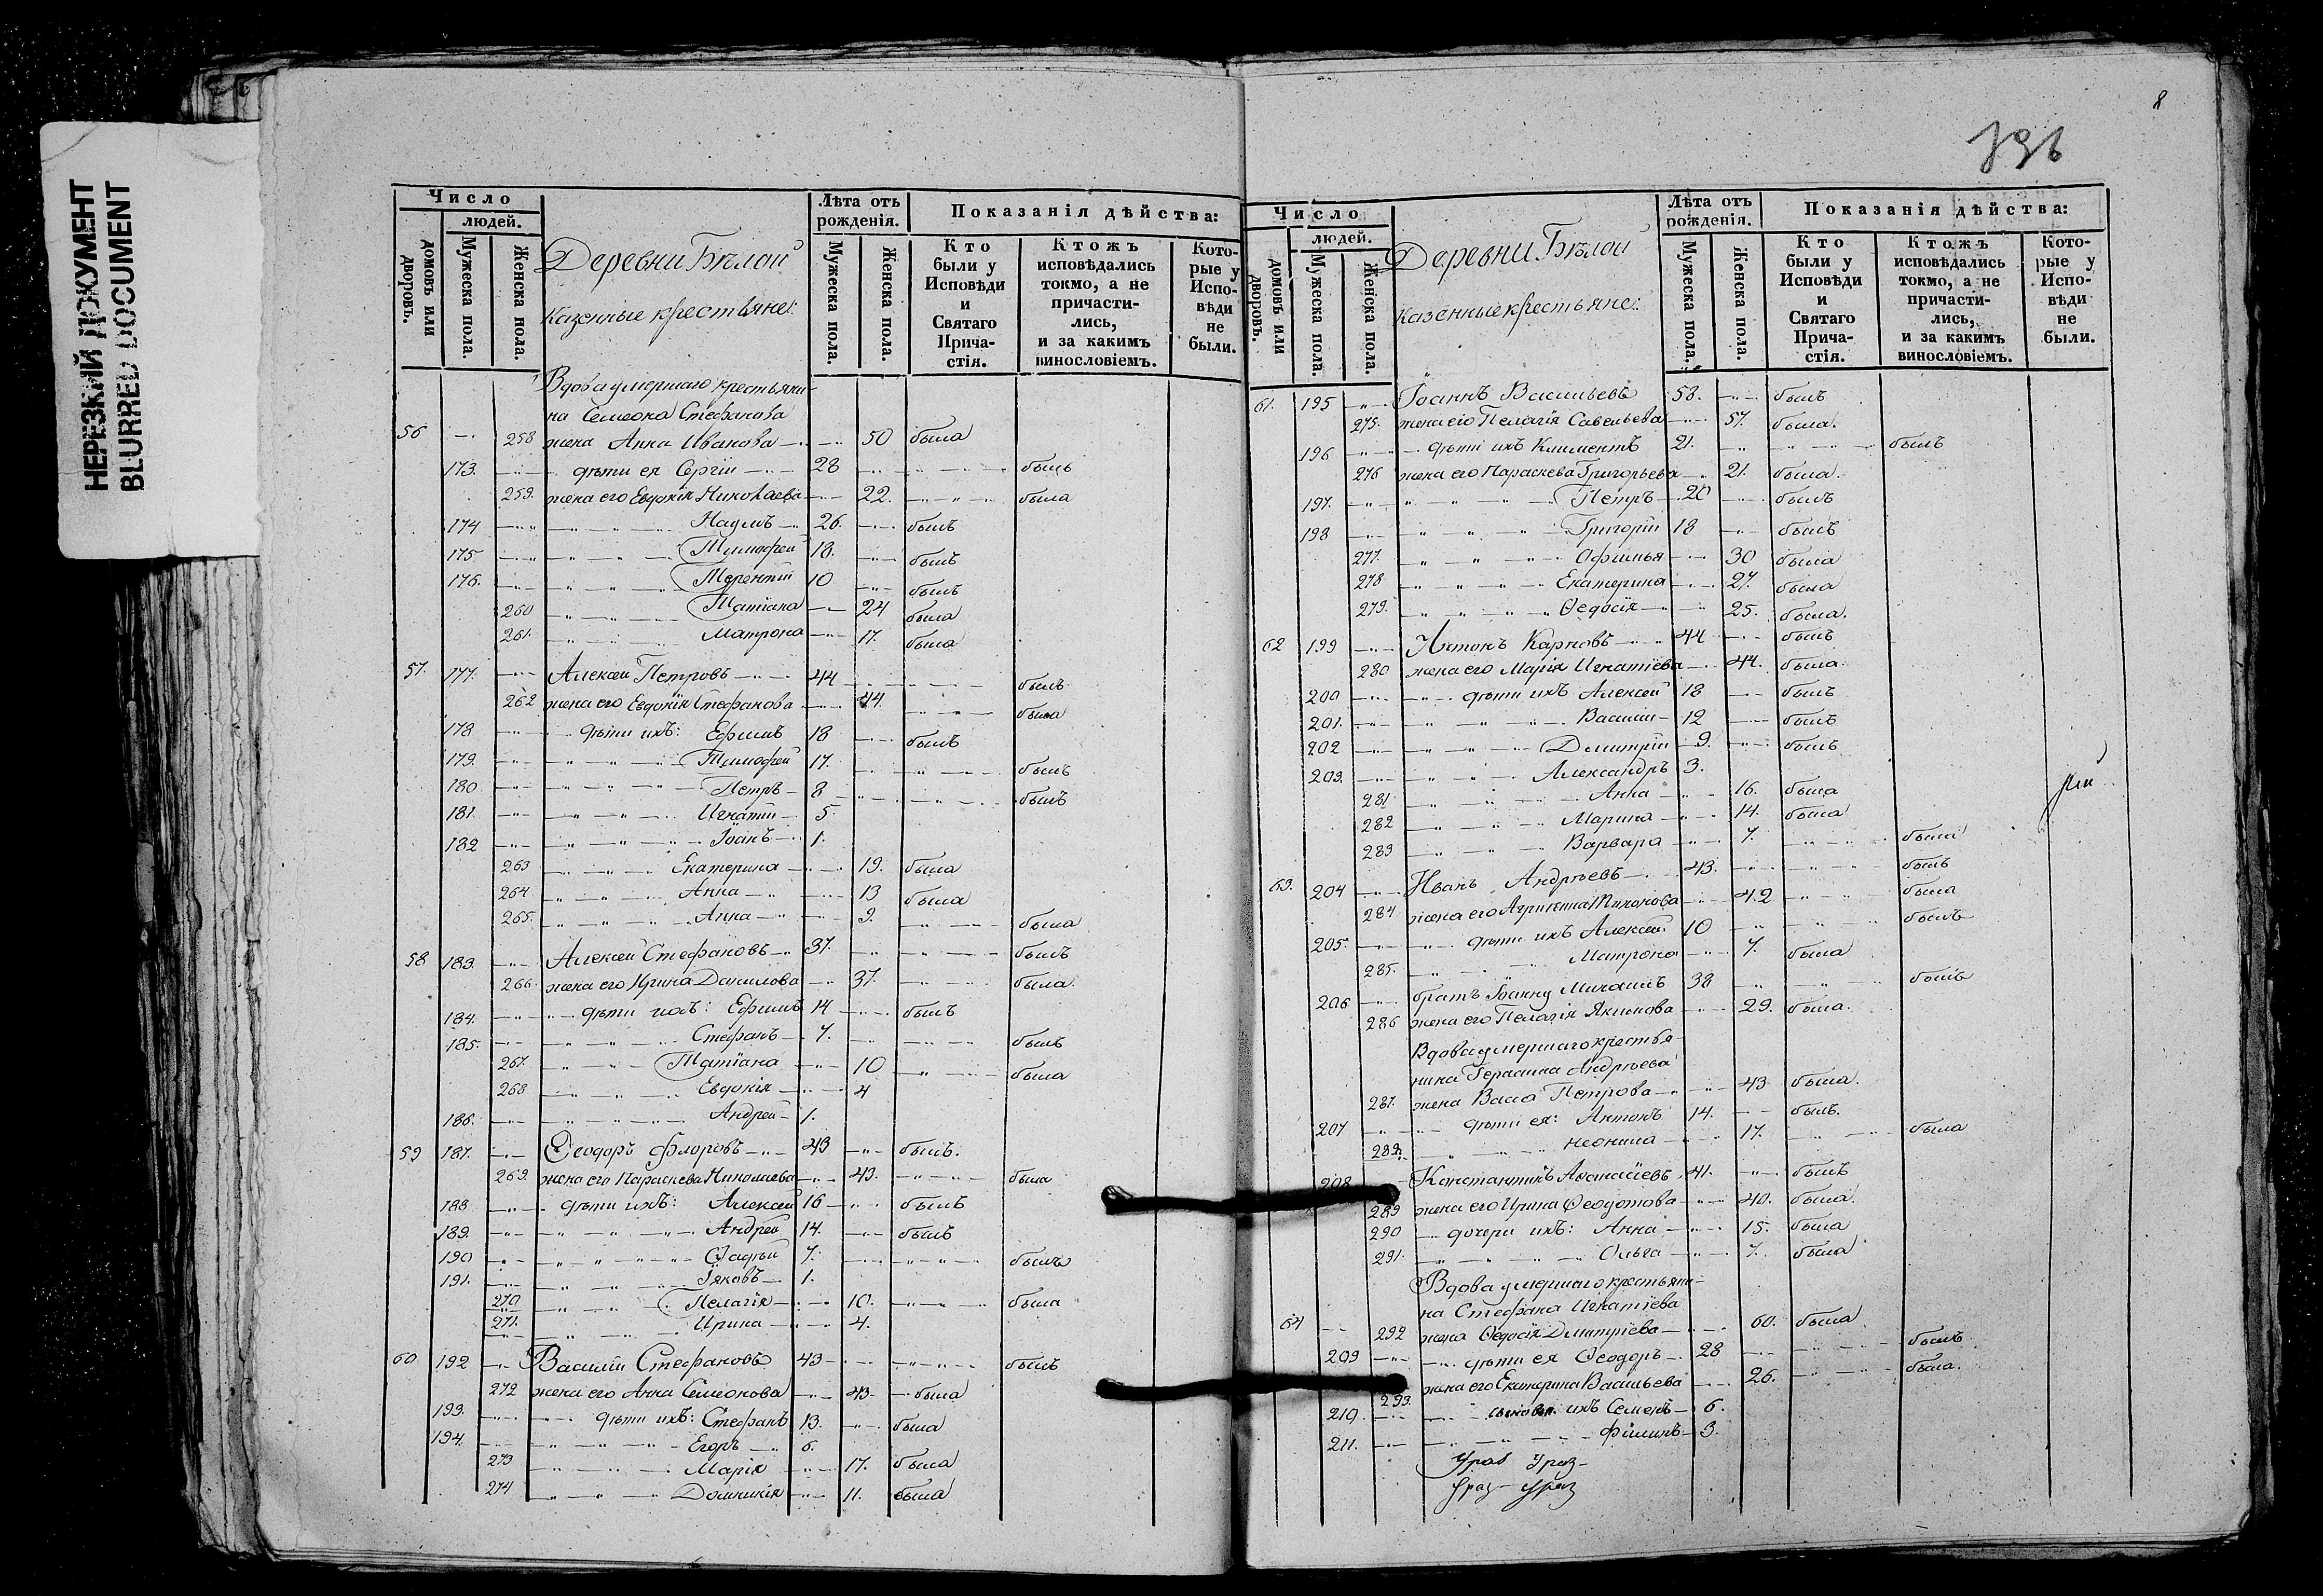 НЕРЕЗКИЙ ДОКУМЕНТ
BLURRED DOCUMENT
Число
людей.
домовъ или дворовъ.
Мужеска пола.
Женска пола.
Деревни Бѣлой
казенные крестьяне:
Лѣта отъ рожденія.
Мужеска пола.
Женска пола.
Показанія дѣйства:
Кто были у Исповѣди и Святаго Причастія.
Ктожъ исповѣдались токмо, а не причастились, и за какимъ винословіемъ.
Которые у Исповѣди не были.
Вдова умершаго крестьяни-
на Семеона Стефанова
56 258 жена Анна Иванова 50 была
173. дѣти ея Сергій 28 былъ
259. жена его Евдокія Николаева 22. была
174 Наумъ 26. былъ
175 Тимофей 18. былъ
176. Терентій 10 былъ
260 Татіана 24 была
261. Матрона 17. была
57. 177. Алексей Петровъ 44 былъ
262 жена его Евдокія Стефанова 44. была
178 дѣти ихъ: Ефимъ 18 былъ
179. Тимофей 17. былъ
180 Петръ 8 былъ
181. Игнатій 5.
182 Іоанъ 1.
263 Екатерина 19. была
264 Анна 13 была
265. Анна 9. была
58 183. Алексей Стефановъ 37. былъ
266. жена его Ирина Данилова 37. была.
184. дѣти ихъ: Ефимъ 14 былъ
185. Стефанъ 7. былъ
267. Татіана 10 была
268 Евдокія 4
186. Андрей 1.
59 187. Ѳеодоръ Флоровъ 43 былъ.
269. жена его Параскева Николаева 43. была
188 дѣти ихъ: Алексей 16 былъ
189. Андрей 14. былъ
190 Ѳадѣй 7. былъ
191. Іяковъ 1.
270 Пелагія 10. была
271. Ирина 4.
60 192 Василій Стефановъ 43 былъ
272 жена его Анна Семеонова 43. была
193. дѣти ихъ: Стефанъ 13. была
194. Егоръ 6.
273 Марія 17. была
274 Домникія 11. была
8
Число
людей.
домовъ или дворовъ.
Мужеска пола.
Женска пола.
Деревни Бѣлой
казенные крестьяне:
Лѣта отъ рожденія.
Мужеска пола.
Женска пола.
Показанія дѣйства:
Кто были у Исповѣди и Святаго Причастія.
Ктожъ исповѣдались токмо, а не причастились, и за какимъ винословіемъ.
Которые у Исповѣди не были.
61. 195 Іоаннъ Васильевъ 58. былъ
275. жена его Пелагія Савельева 57. была.
196 дѣти ихъ Климентъ 21. былъ
276 жена его Параскева Григорьева 21. была.
197. Петръ 20 былъ
198 Григорій 18 былъ
277. Офимья 30 была
278 Екатерина 27. была
279. Ѳедосія 25. была.
62 199 Антонъ Карповъ 44 былъ
280 жена его Марія Игнатіева 44. была.
200 дѣти ихъ Алексей 18 былъ
201. Василій 12 былъ
202 Димитрій 9. былъ
203. Александръ 3.
281 Анна 16. была
282 Марина 14. была
283 Варвара 7. была
63. 204 Иванъ Андрѣевъ 43. былъ
284 жена его Агрипена Тихонова 42 была
205. дѣти ихъ Алексей 10 былъ
285. Матрона 7. была
206 братъ Іоанну Михаилъ 38 былъ
286 жена его Пелагія Якимова 29. была.
Вдова умершаго крестья-
нина Герасима Андрѣева
287. жена Васса Петрова 43 была.
207 дѣти ея: Антонъ 14. былъ.
288. Неонила 17. была
208 Константинъ Аѳанасіевъ 41. былъ
289 жена его Ирина Ѳеодотова 40. была.
290 дочери ихъ: Анна 15. была
291. Ольга 7. была
Вдова умершаго крестьяни-
на Стефана Игнатіева
64 292 жена Ѳедосія Димитріева 60. была
209 дѣти ея Ѳеодоръ 28 былъ
293. жена его Екатерина Васильева 26. была.
210. сыновья ихъ Семенъ 6.
211. Филипъ 3.